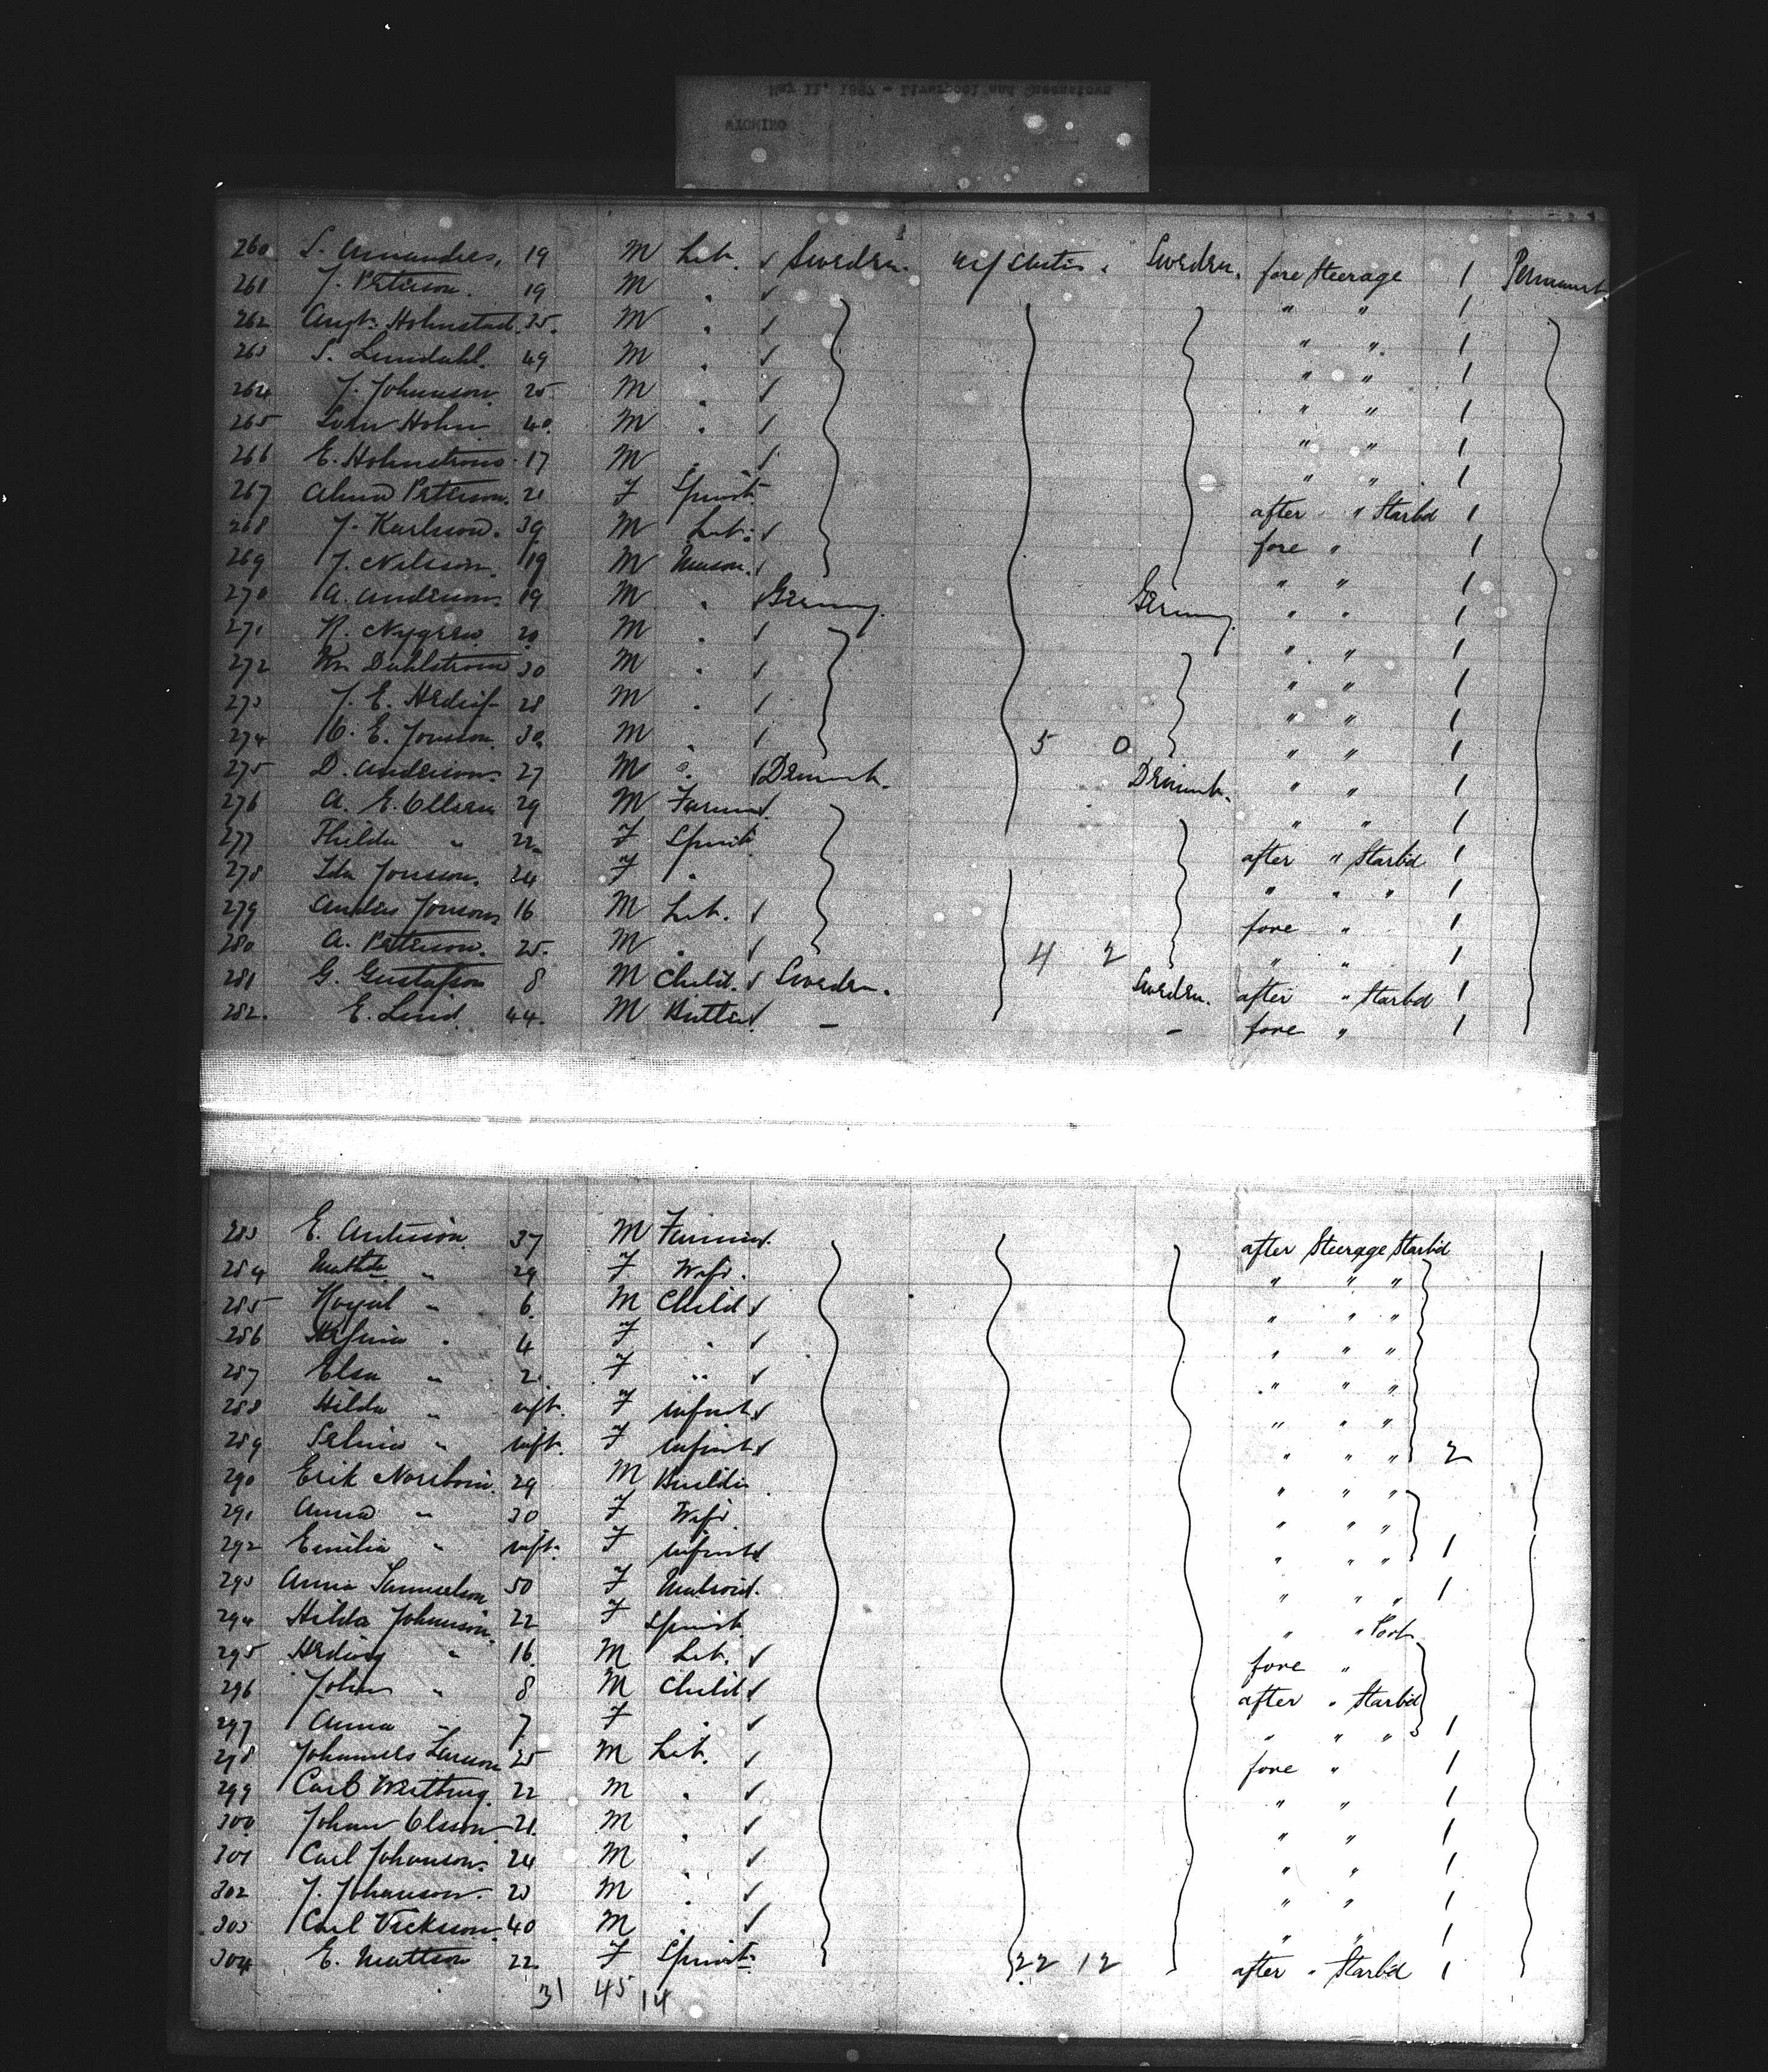 May 11, 1887 - Liverpool and Queenstown
WYOMING
260 S. 19 M Lab. Sweden. U/States. Sweden. fore Steerage 1 Permanent
261 J. Peterson. 19 M " " " 1
262 Augt. Holmstad. 35. M " " " 1
263 S. Lundahl. 49 M " " " 1
264 J. Johnnson. 25. M " " " 1
265 Sven Holm 40. M " " " 1
266 E. Holmstrom. 17 M " " " 1
267 Alma Peterson. 21 F Spinst. after " Starbd 1
268 J. Karlsson. 39 M Lab. fore " 1
269 J. Nilsson. 19 M Mason. " " 1
270 A. Anderson. 19 M " Germany. Germany. " " 1
271 K. Nygren 20 M " " " 1
272 Wm Dahlstrom 30 M " " " 1
273 J. E. 28 M " " " 1
274 E. Jonsson. 30. M " 5 0 " " 1
275 D. Anderson. 27 M " Denmark. Denmark. " " 1
276 A. E. Ollsen 29 M Farmer. " " 1
277 Thilda " 22 F Spinst. after " Starbd 1
278 Ida Jonsson. 24 F " " " " 1
279 Anders Jonson 16 M Lab. fore " 1
280 A. Petterson. 25. M " 4 2 " " 1
281 G. Gustafson 8 M Child. Sweden. Sweden. after " Starbd 1
282. E. Lind. 44. M - - fore " 1
283 E. Anderson 37 M Farmer. after Steerage Starbd
284 " 29 F Wife. " " "
285 " 6. M Child " " "
286 " 4 F " " " "
287 Elsa " 2. F " " " "
288 Hilda " inft. F Infant " " "
289 Selma " inft. F Infant " " " 2
290 Erik Norsbom. 29 M Builder " " "
291 Anna " 30 F Wife. " " "
292 Emilia " inft. F Infant " " " 1
293 Anna Samuelson 50 F Matron. " " " 1
294 Hilda Johnnson. 22 F Spinst. " " Port
295 Hedvig " 16. M Lab. fore "
296 John " 8 M Child after " Starbd
297 Anna " 7 F " " " " 1
298 Johannes Larson 25 M Lab. fore " 1
299 Carl 22 M " " " 1
300 Johan Olsson 21. M " " " 1
301 Carl Johanson. 24 M " " " 1
302 J. Johanson. 23 M " " " 1
303 Carl 40 M " " " 1
304 E. Mattson 22. F Spinst. 22 12 after " Starbd 1
31 45 14